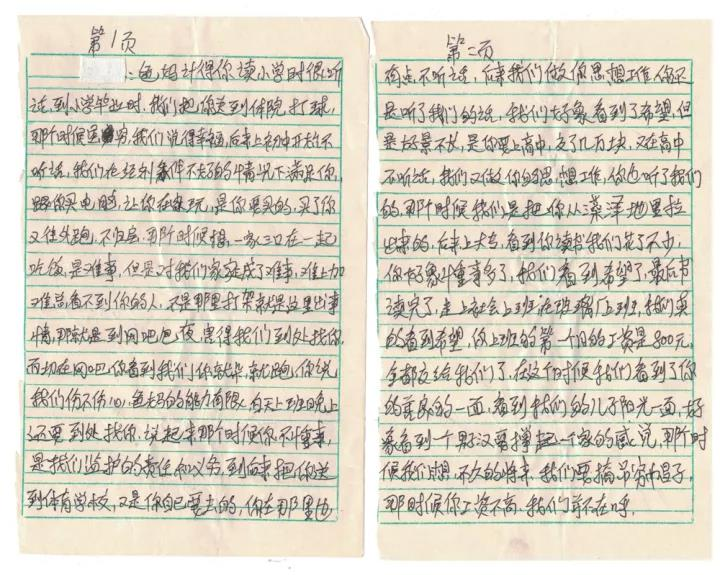 第1页
：爸妈计得你读小学时很听
话,到小学毕业时,我们把你送到体院打球,
那个时候虽穷,我们觉得幸福,后来上初中开始不
听话,我们在经济条件不起的情况下满足你,
跟你买电脑,让你在家玩,是你要买的,买了你
又往外跑,不归屋,那个时候想,一家三口在一起
吃饭,是难事,但是对我们家庭成了难事,难上加
难总看不到你的人,不是那里打架就是这里出事
情,那就是到网吧包夜,害得我们到处找你,
而切在网吧你看到我们你就柴,就跑,你说
我们伤不伤心,爸妈的能力有限,白天上班晚上
还要到处找你,说起来那个时候你不懂事,
是我们监护的责任和义务,到后来把你送
到体育学校,又是你自己要去的,你在那里也
第二页
有点不听话,后来我们做你思想工作,你还
是听了我们的话,我们好象看到了希望,但
是好景不长,是你要上高中,交了几万块,又在高中
不听话,我们又做你的思想工作,你也听了我们
的,那个时候我们是把你从沼泽地里拉
出来的,后来上大专,看到你读书我们花了不少,
你好象懂事多了,我们看到希望了,最后书
读完了,走上社会上班在玻璃厂上班,我们真
的看到希望,你上班的第一个月的工资是800元,
全都交给我们了,在这个时候我们看到了你
的善良的一面,看到我们的儿子阳光一面,好
象看到一个男汉要撑起一个家的感觉,那个时
候我们想不久的将来,我们要摘吊穷帽子,
那时候你工资不高,我们并不在呼,